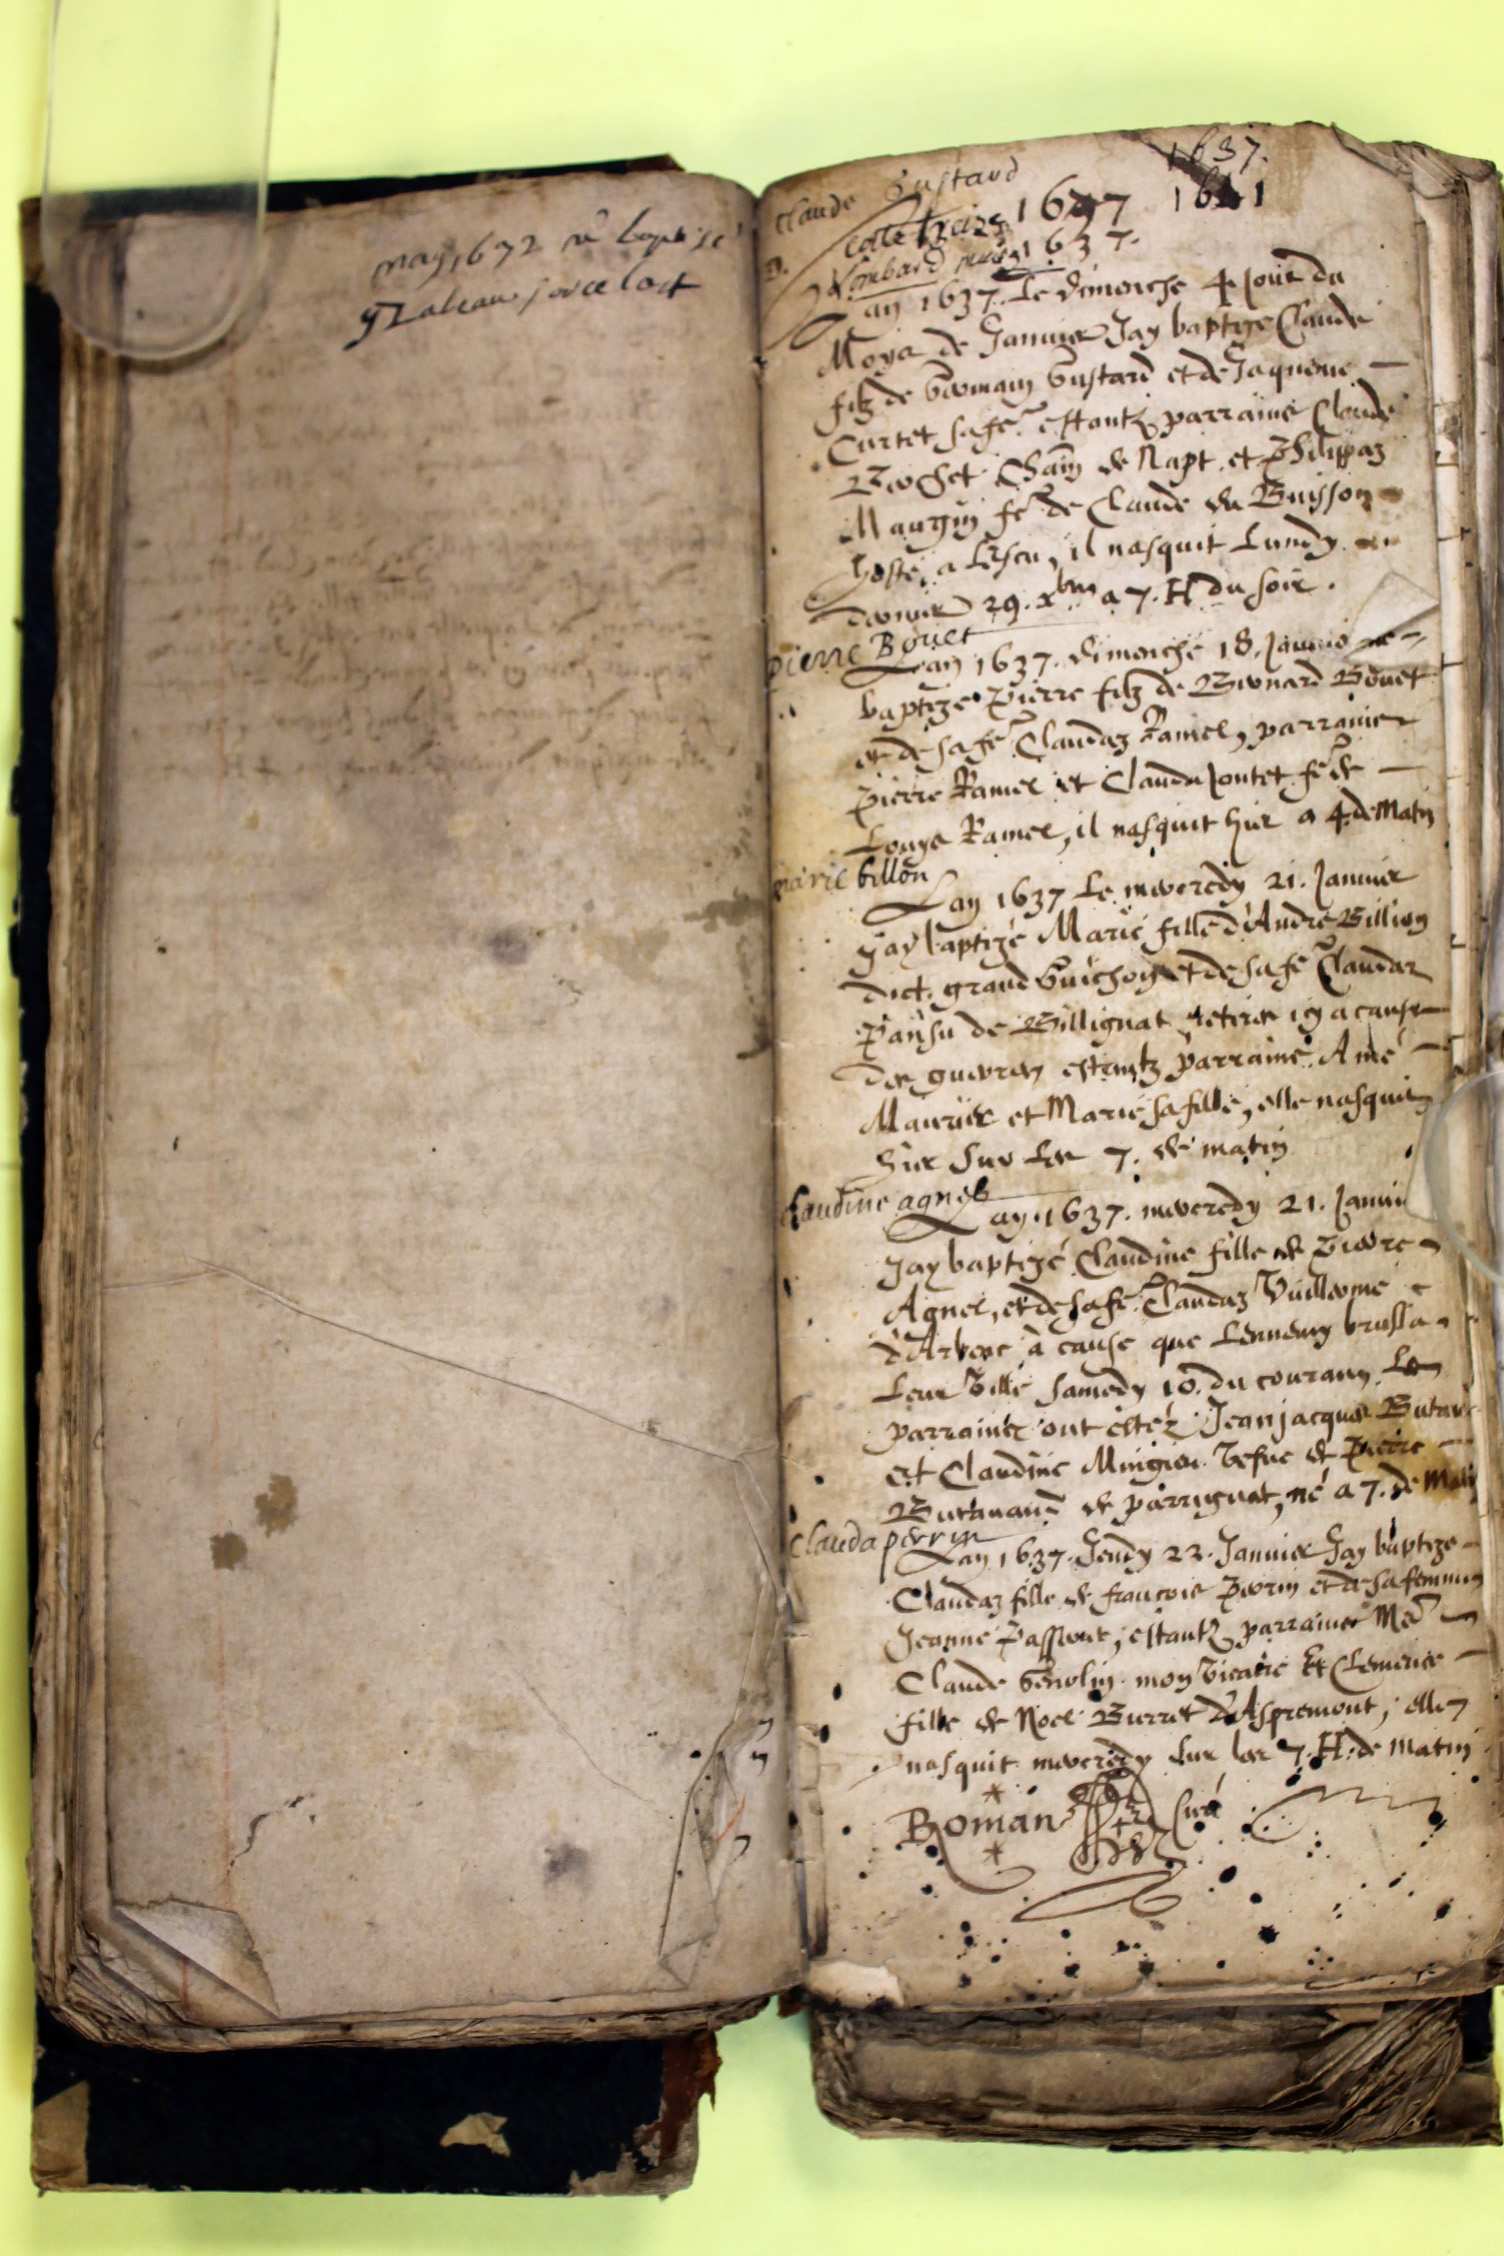 may 1672
Claude Gustard
1637.
cotte treize 1647 1641
Lombard 1637.
Lan 1637. Le dimenche 4 Jour du
Moys de Janvier Jay baptize Claude
filz de Germain Gustard et de Jaqueme
Curtet sa fe. estantz parrains Claude
Berchet de Napt. et Philippaz
Maugin fe. de Claude du Buisson
hoste a Lescu, il nasquit Lundy
dernier 29. xbre a 7. H du soir.
pierre Bouet
Lan 1637. dimenche 18. Janvier
baptize Pierre filz de Bernard Bouet
et de sa fe. Claudaz Ramel, parrains
Pierre Ramel et Clauda Jontet fe. de
Louys Ramel, il nasquit hier a 4. de Matin
marie billon
Lan 1637 Le mercredy 21. Janvier
Jay baptizé Marie fille d'André Billion
dict. grand Guichon et de sa fe. Claudaz
Pansu de Billignat retirez icy a cause
des guerres estantz parrains. Amé
Maurier et Marie sa fille, elle nasquit
hier sur les 7. de matin
Claudine agnel
Lan 1637. mercredy 21. Janvi
Jay baptizé Claudine fille de Pierre
Agnel, et de sa fe. Claudaz Vuillerme
d'Arbent à cause que Lennemy brusla
Leur Ville samedy 10. du courant. Les
parrains ont estéz Jean jacques
et Claudine Mingion Vefue de Pierre
de parrignat, né a 7. de Matin
Clauda perrin
Lan 1637. Jeudy 22. Janvier Jay baptize
Claudaz fille de francois Perrin et de sa femme
Jeanne Passerat, estantz parrains Mre
Claude Genolin mon Vicaire Et Clemence
fille de Noel Burret d'Aspremont, elle
nasquit mercredy sur les 7. H. de matin
Roman Curé